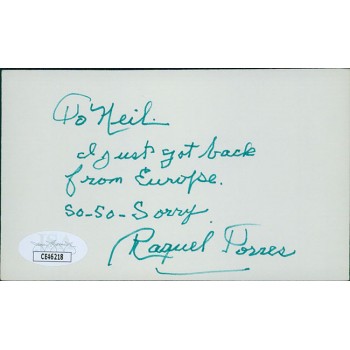 To Neil.
I just got back
from Europe.
So-So-Sorry
Raquel Torres
CE46218